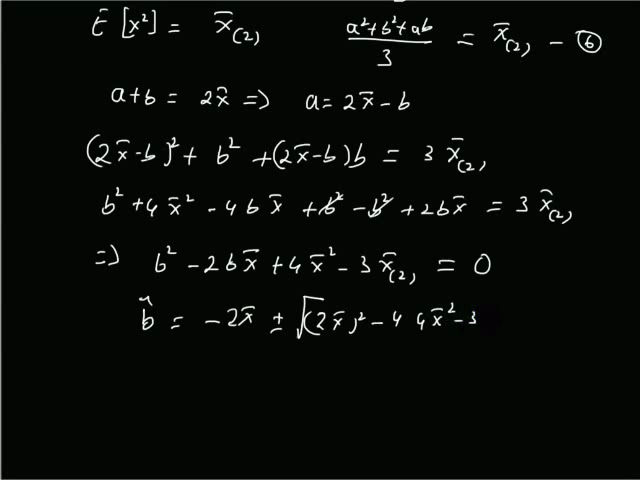 E[x²] = x̄₍₂₎   (a²+b²+ab)/3 = x̄₍₂₎ – ⑥
a+b = 2x̄ => a = 2x̄ – b
(2x̄-b)² + b² + (2x̄-b)b = 3 x̄₍₂₎
b² + 4x̄² - 4bx̄ + b² - b² + 2bx̄ = 3 x̄₍₂₎
=> b² - 2bx̄ + 4x̄² - 3x̄₍₂₎ = 0
b̂ = -2x̄ ± √(2x̄)² - 4 4x̄² - 3